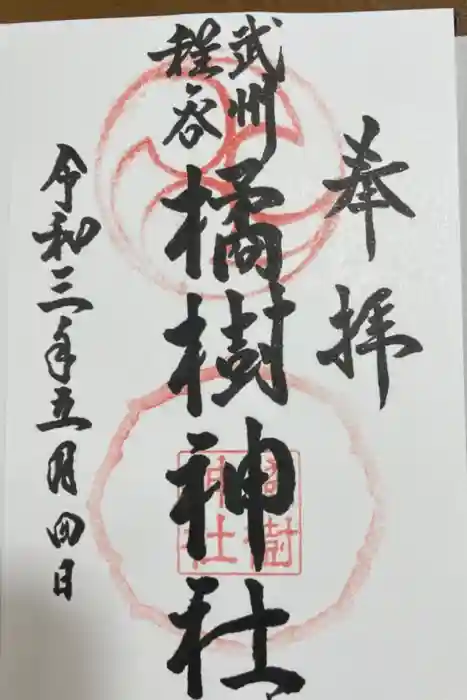 奉拝
武州
程谷
橘樹神社
令和三年五月四日
橘樹
神社